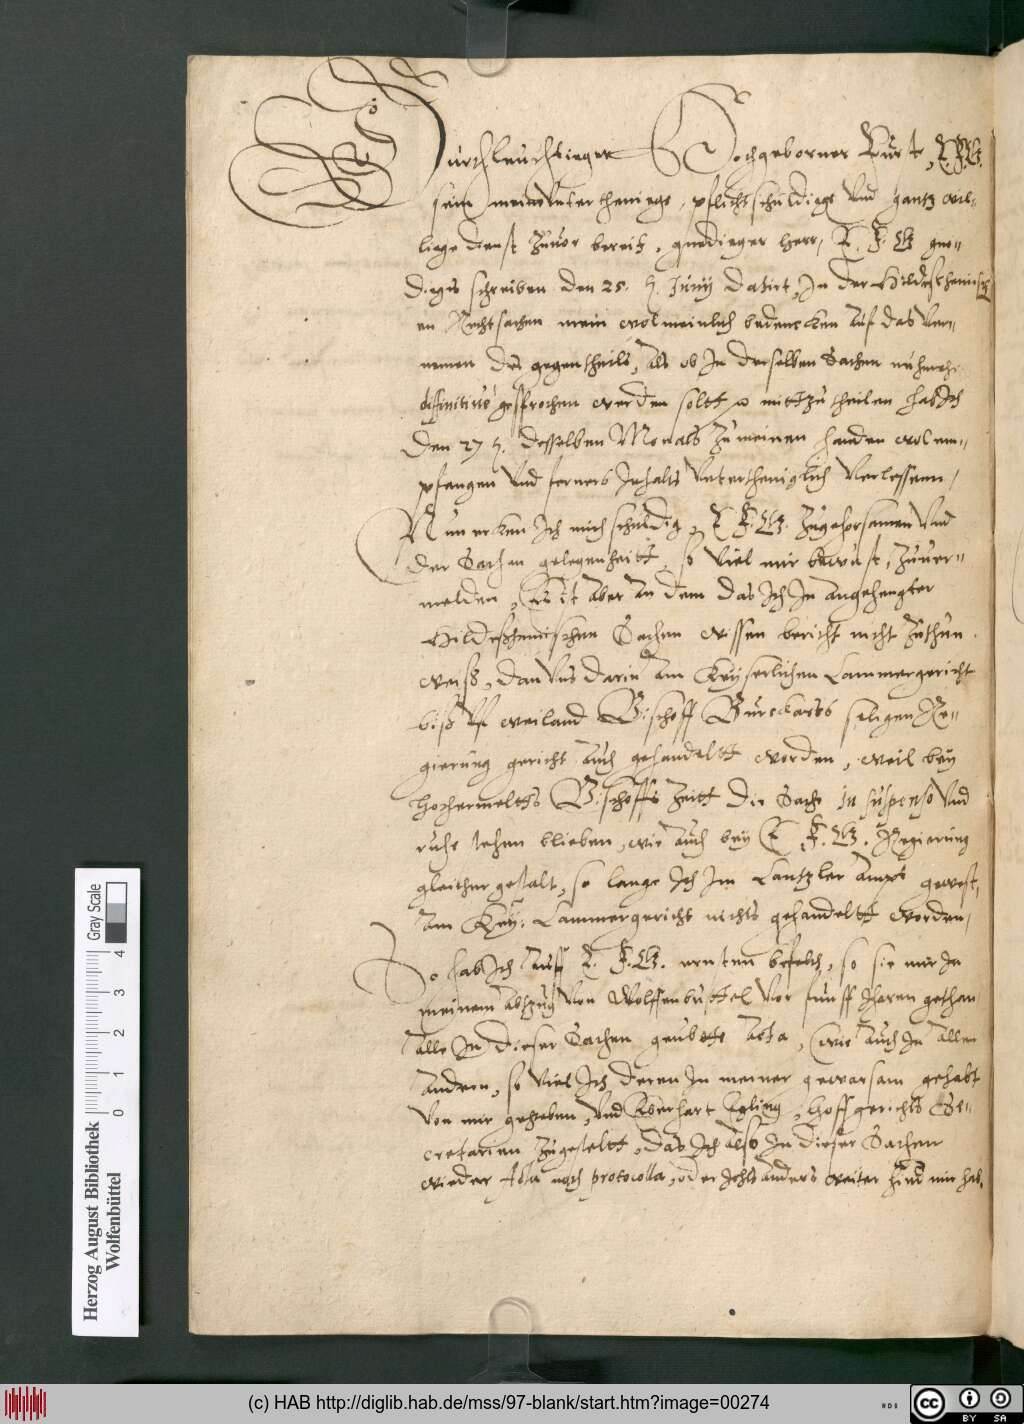 Durchleuchtieger Hochgeborner Furst, E. F. G.
sein mein vnterthenige, pflichtschuldige vnd gantz wil-
liege dienst zuuor bereit, gnediger herr, E. F. G. gne-
diges schreiben den 25. h. Junij datirt, In der Hildesheimisch
en Rechtsachen mein wolmeinlich bedencken auf das ver-
nemen des gegentheils, als ob in derselben Sachen nuhmehr
difinitiue gesprochen werden soltt mittzutheilen hab Ich
den 27 h. desselben Monats zu meinen handen wol em-
pfangen vnd ferners Inhalts vntertheniglich verlessenn,
Nun erken Ich mich schuldig, E. F. G. zugehorsamen vnd
der Sachen gelegenheitt, so viel mir bewust, zuuer-
melden, Es ist aber an dem das Ich In angehengter
Hildeshemischen Sachen wissen bericht nicht zuthun
weiß, dan vns darin am Keyserlichen Cammergericht
biß vf weiland Bischoff Burckarts seligen Re-
gierung gericht auch gehandeltt worden, weil bey
hochermelts Bischoffs zeitt die Sache in suspenso vnd
ruhe stehen blieben, wie auch bey E. F. G. Regierung
gleicher gestalt, so lange Ich Im Cantzler ampt gewest,
am Key. Cammergericht nichts gehandeltt worden,
So hab Ich auff E. F. G. ernsten befelch, so sie mir In
meinem abzug von Wolffenbuttel vor funff Jharen gethan
alle In dieser Sachen geubte acta, wie auch In allen
andern, so viel Ich deren In meiner gewarsam gehabt
von mir gegeben, vnd Eberhart Egling, Hoffgerichts Se-
cretarien zugesteltt, das Ich also In dieser Sachen
wieder Acta noch protocolla, oder Ichts anders weiter hind mir hab,
Herzog August Bibliothek
Wolfenbüttel
Gray Scale
0 1 2 3 4
(c) HAB http://diglib.hab.de/mss/97-blank/start.htm?image=00274
cc BY SA